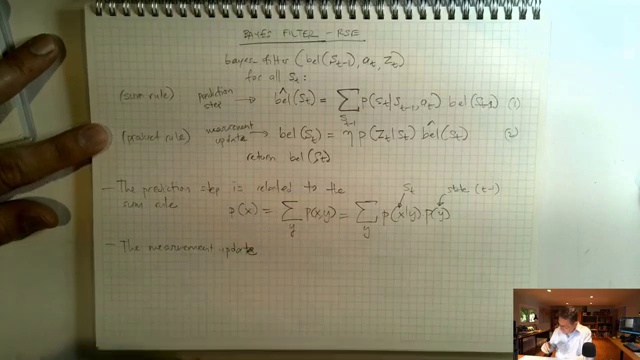 BAYES FILTER - RSE
bayes-filter (bel(S_{t-1}), a_t, Z_t)
for all S_t:
(sum rule) prediction step → b̂el(S_t) = Σ_{S_{t-1}} p(S_t | S_{t-1}, a_t) bel(S_{t-1}) (1)
(product rule) measurement update → bel(S_t) = η p(Z_t | S_t) b̂el(S_t) (2)
return bel(S_t)
- The prediction step is related to the
sum rule
S_t state (t-1)
p(x) = Σ_y p(x,y) = Σ_y p(x|y) p(y)
- The measurement update